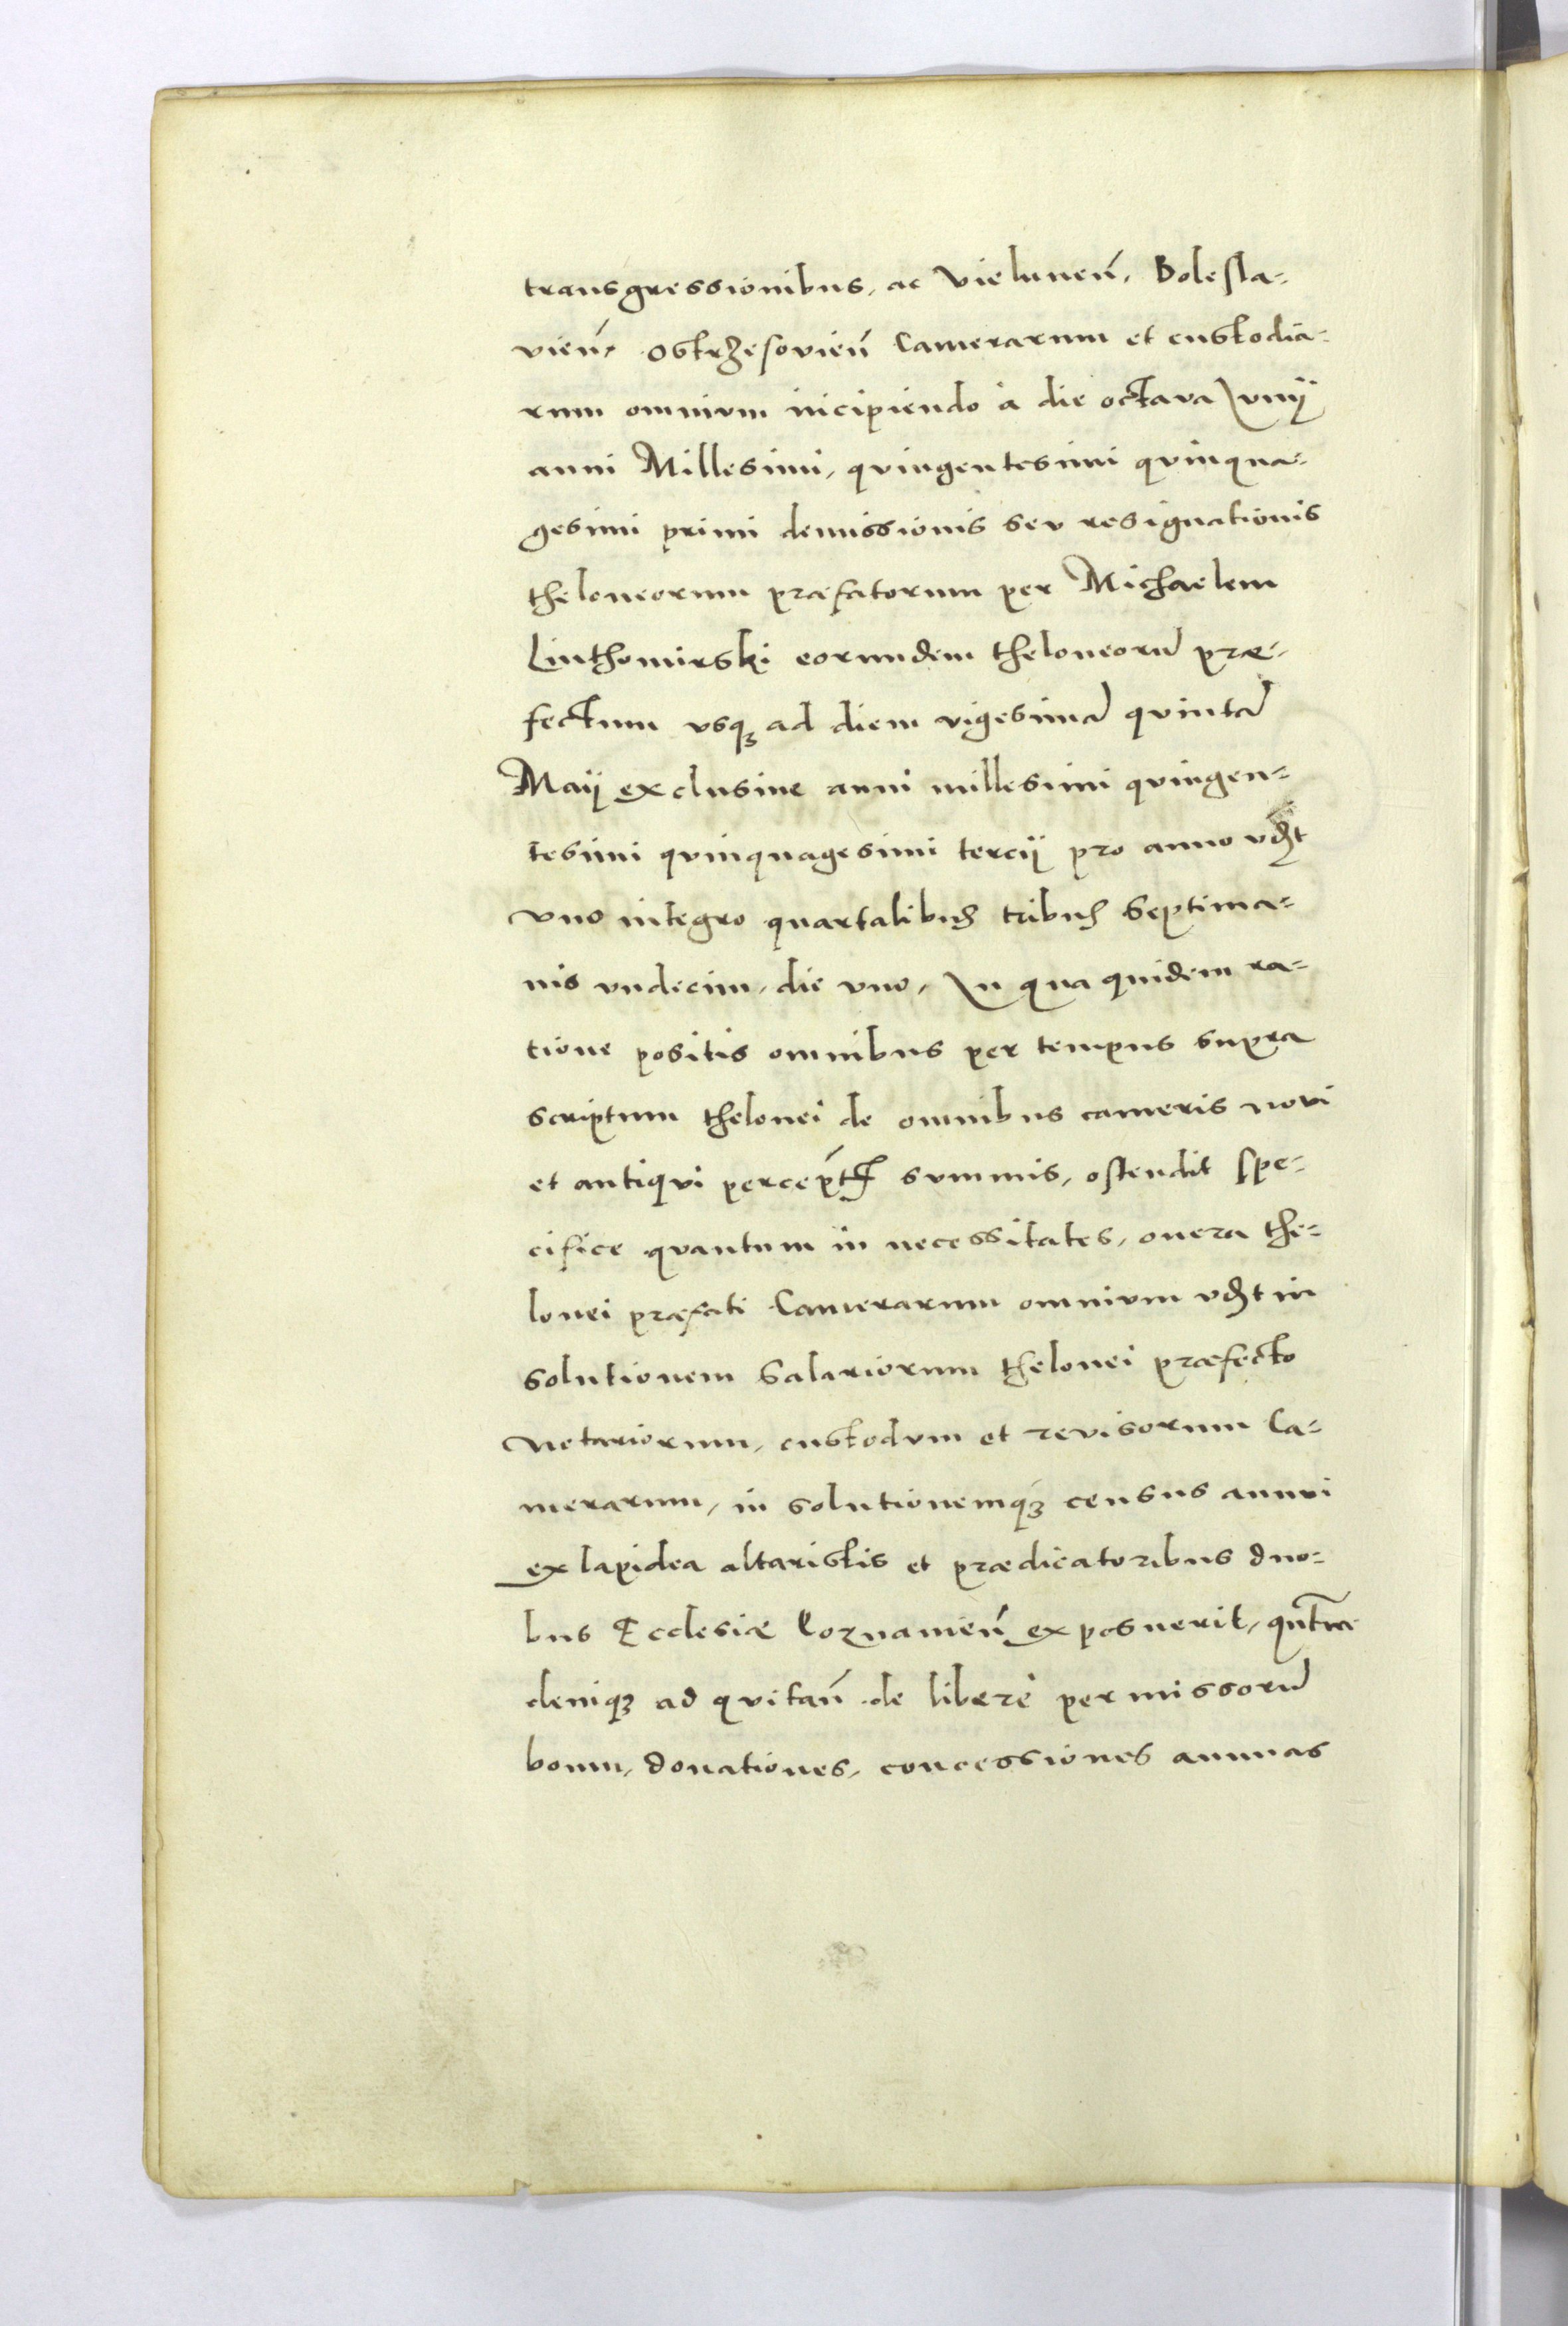 transgressionibus, ac Vielunen̄, Bolesla-
vien̄, Ostrzesovien̄ Camerarum et custodia-
rum omnium incipiendo à die octava Junij
anni Millesimi, quingentesimi quinqua-
gesimi primi demissionis seu resignationis
theloneorum præfatorum per Michaelem
Linthomirski eorundem theloneorū præ-
fectum vsq3 ad diem vigesimā quintā
Maij exclusive anni millesimi quingen-
tesimi quinquagesimi tercij pro anno vꝫt
vno integro quartalibus tribus Septima-
nis vndecim, die vno, In qua quidem ra-
tione positis omnibus per tempus supra
scriptum thelonei de omnibus cameris novi
et antiqui percept̄ summis, ostendit spe-
cifice quantum in necessitates, onera the-
lonei præfati Camerarum omnium vꝫt in
solutionem Salariorum thelonei præfecto
Notariorum, custodum et revisorum Ca-
merarum, in solutionemq3 census annui
ex lapidea altaristis et prædicatoribus duo-
bus Ecclesiæ Poznanien̄ exposuerit,
deniq3 ad quitan̄ de liberè permissorū
boum, donationes, concessiones annuas